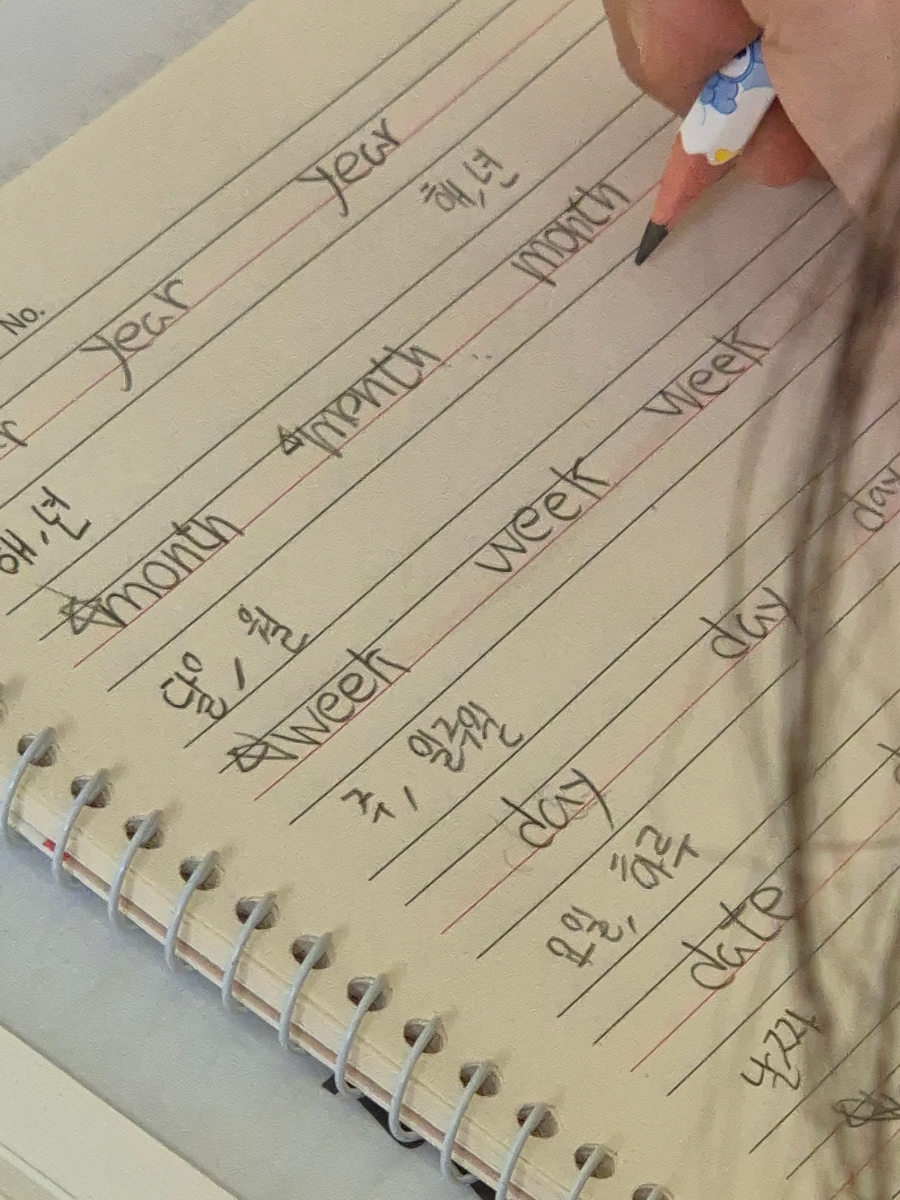 No.
year year
해,년 해,년
month month month
달, 월
week week week
주, 일주일
day day day
요일, 하루
date
날짜